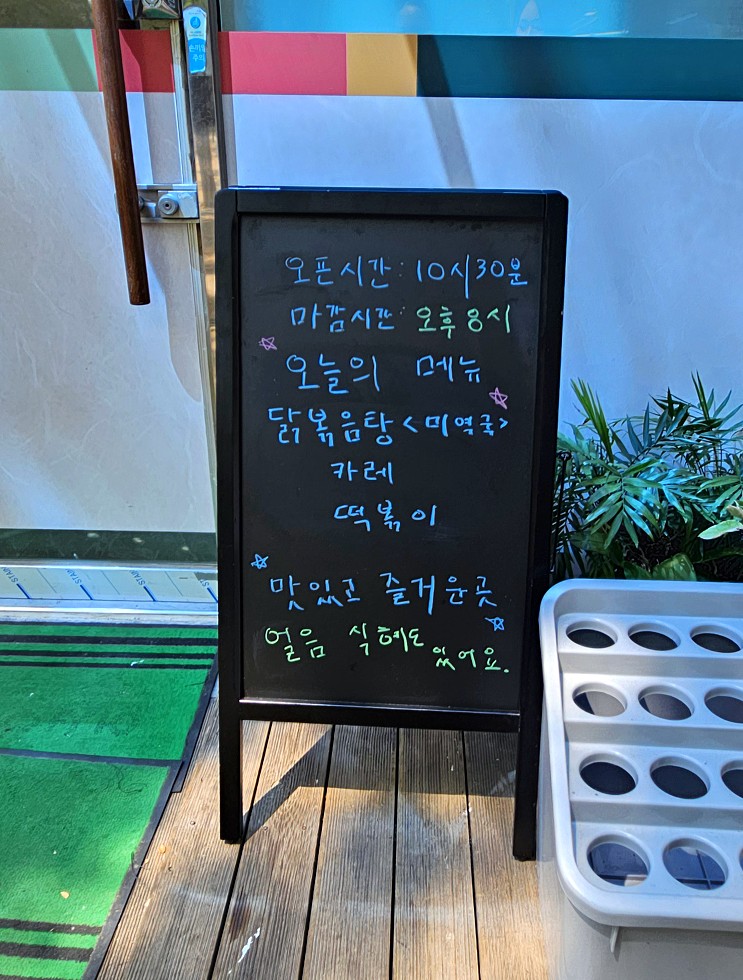 오픈시간: 10시30분
마감시간: 오후 8시
오늘의 메뉴
닭볶음탕<미역국>
카레
떡볶이
맛있고 즐거운곳
얼음 식혜도 있어요.